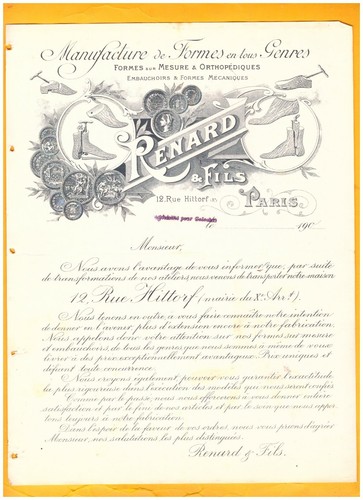 Manufacture de Formes en tous Genres
FORMES SUR MESURE & ORTHOPÉDIQUES
EMBAUCHOIRS & FORMES MÉCANIQUES
RENARD
& FILS
12, Rue Hittorf
PARIS
le 190
Monsieur,
Nous avons l'avantage de vous informer que, par suite
de transformations de nos ateliers, nous venons de transporter notre maison
12, Rue Hittorf (mairie du Xe Arrt).
Nous tenons en outre, à vous faire connaître notre intention
de donner en l'avenir plus d'extension encore à notre fabrication.
Nous appelons donc votre attention sur nos formes sur mesure
et embauchoirs de tous les genres que nous sommes à même de vous
livrer à des prix exceptionnellement avantageux. Prix uniques et
défiant toute concurrence.
Nous croyons également pouvoir vous garantir l'exactitude
la plus rigoureuse dans l'exécution des modèles qui nous sont confiés.
Comme par le passé, nous nous efforcerons à vous donner entière
satisfaction et par le fini de nos articles et par le soin que nous appor
tons toujours à notre fabrication.
Dans l'espoir de la faveur de vos ordres, nous vous prions d'agréer
Monsieur, nos salutations les plus distinguées.
Renard & Fils.